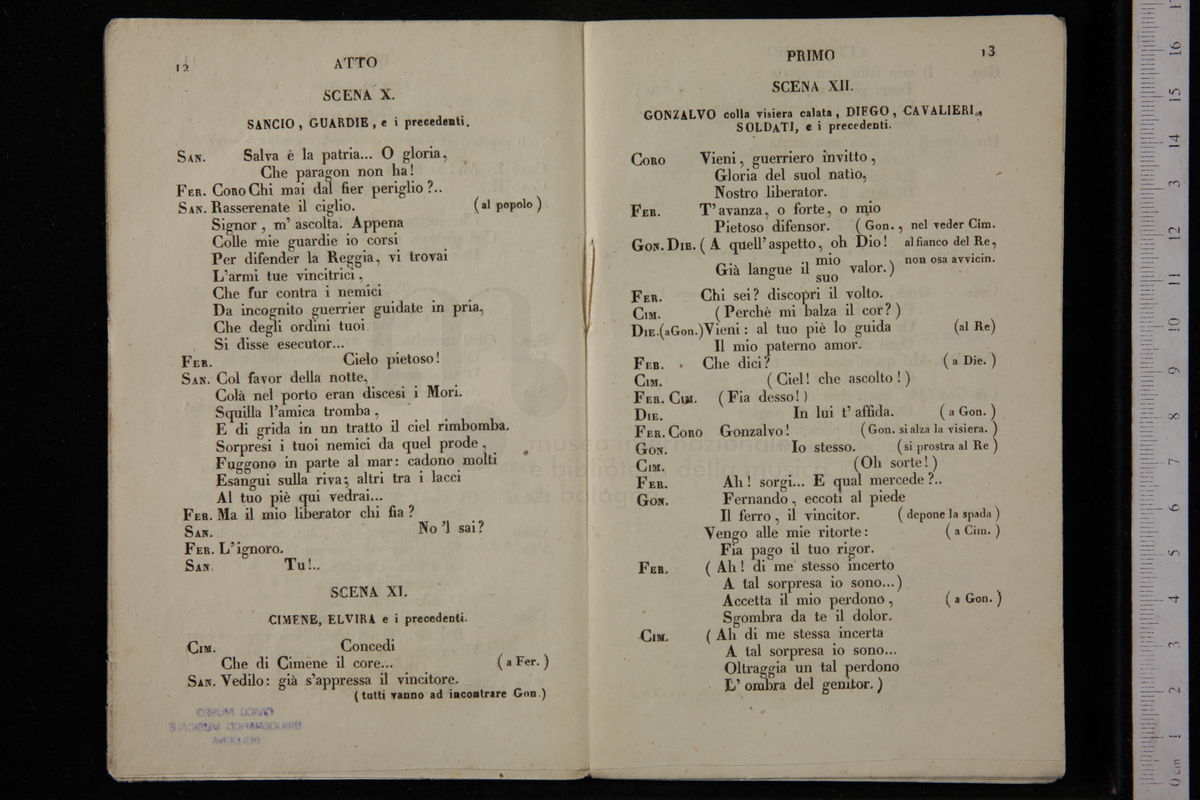 12
ATTO
SCENA X.
SANCIO, GUARDIE, e i precedenti.
SAN. Salva è la patria... O gloria,
Che paragon non ha!
FER. CORO Chi mai dal fier periglio?..
SAN. Rasserenate il ciglio. (al popolo)
Signor, m' ascolta. Appena
Colle mie guardie io corsi
Per difender la Reggia, vi trovai
L'armi tue vincitrici,
Che fur contra i nemici
Da incognito guerrier guidate in pria,
Che degli ordini tuoi
Si disse esecutor...
FER. Cielo pietoso!
SAN. Col favor della notte,
Colà nel porto eran discesi i Mori.
Squilla l'amica tromba,
E di grida in un tratto il ciel rimbomba.
Sorpresi i tuoi nemici da quel prode,
Fuggono in parte al mar: cadono molti
Esangui sulla riva; altri tra i lacci
Al tuo piè qui vedrai...
FER. Ma il mio liberator chi fia?
SAN. No 'l sai?
FER. L'ignoro.
SAN. Tu!..
SCENA XI.
CIMENE, ELVIRA e i precedenti.
CIM. Concedi
Che di Cimene il core... (a Fer.)
SAN. Vedilo: già s'appressa il vincitore.
(tutti vanno ad incontrare Gon.)
CIVICO MUSEO
BIBLIOGRAFICO MUSICALE
BOLOGNA
PRIMO
13
SCENA XII.
GONZALVO colla visiera calata, DIEGO, CAVALIERI,
SOLDATI, e i precedenti.
CORO Vieni, guerriero invitto,
Gloria del suol natio,
Nostro liberator.
FER. T' avanza, o forte, o mio
Pietoso difensor. (Gon., nel veder Cim.
GON. DIE. (A quell' aspetto, oh Dio! al fianco del Re,
Già langue il mio suo valor.) non osa avvicin.
FER. Chi sei? discopri il volto.
CIM. (Perchè mi balza il cor?)
DIE. (a Gon.) Vieni: al tuo piè lo guida (al Re)
Il mio paterno amor.
FER. Che dici? (a Die.)
CIM. (Ciel! che ascolto!)
FER. CIM. (Fia desso!)
DIE. In lui t' affida. (a Gon.)
FER. CORO Gonzalvo! (Gon. si alza la visiera.)
GON. Io stesso. (si prostra al Re)
CIM. (Oh sorte!)
FER. Ah! sorgi... E qual mercede?..
GON. Fernando, eccoti al piede
Il ferro, il vincitor. (depone la spada)
Vengo alle mie ritorte: (a Cim.)
Fia pago il tuo rigor.
FER. (Ah! di me stesso incerto
A tal sorpresa io sono...)
Accetta il mio perdono, (a Gon.)
Sgombra da te il dolor.
CIM. (Ah di me stessa incerta
A tal sorpresa io sono...
Oltraggia un tal perdono
L' ombra del genitor.)
museo internazionale
e biblioteca della musica
di bologna